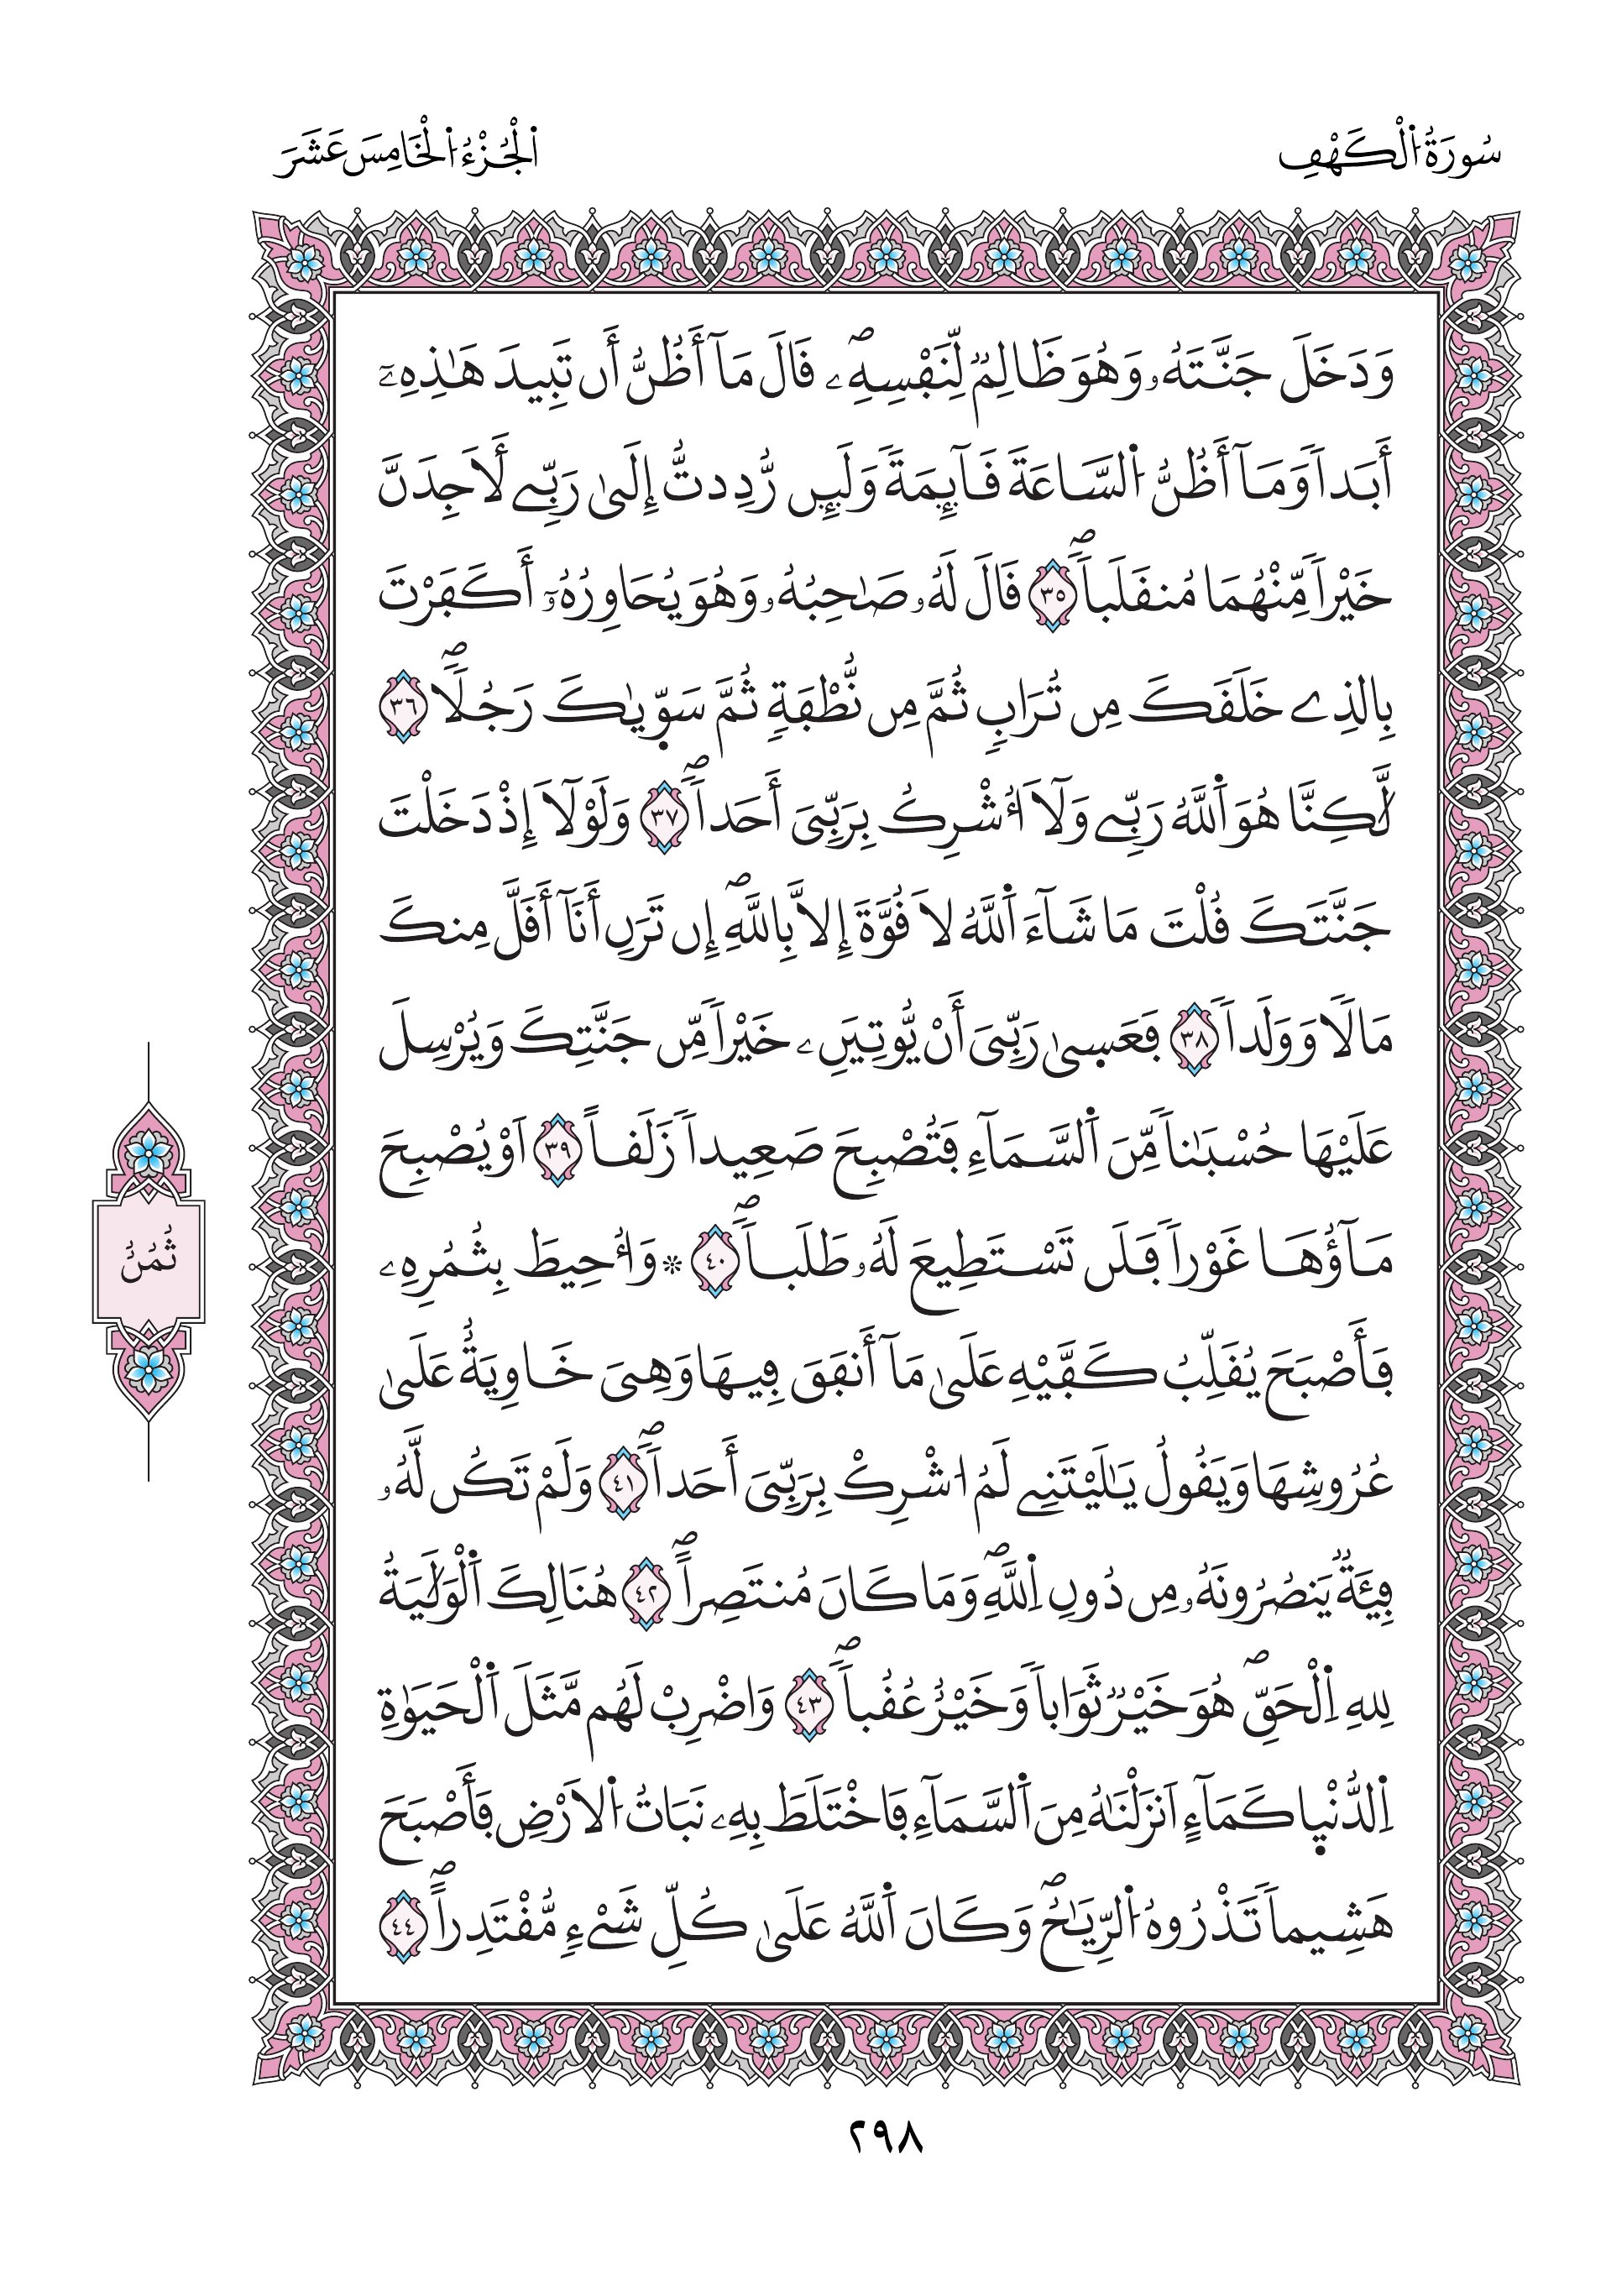 سُورَةُ اُ۬لْكَهْفِ
اَ۬لْجُزْءُ اُ۬لْخَامِسَ عَشَرَ
وَدَخَلَ جَنَّتَهُۥ وَهُوَ ظَالِمٞ لِّنَفْسِهِۦۖ فَالَ مَآ أَظُنُّ أَن تَبِيدَ هَٰذِهِۦٓ
أَبَداٗ وَمَآ أَظُنُّ اُ۬لسَّاعَةَ فَآئِمَةٗ وَلَئِن رُّدِدتُّ إِلَىٰ رَبِّے لَأَجِدَنَّ
خَيْراٗ مِّنْهُمَا مُنفَلَباٗۖ ٣٥ فَالَ لَهُۥ صَٰحِبُهُۥ وَهُوَ يُحَاوِرُهُۥٓ أَكَفَرْتَ
بِالذِے خَلَفَكَ مِن تُرَابٖ ثُمَّ مِن نُّطْفَةٖ ثُمَّ سَوّ۪يٰكَ رَجُلٗاۖ ٣٦
لَّٰكِنَّا هُوَ اَ۬للَّهُ رَبِّے وَلَآ أُشْرِكُ بِرَبِّيَ أَحَداٗۖ ٣٧ وَلَوْلَآ إِذْ دَخَلْتَ
جَنَّتَكَ فُلْتَ مَا شَآءَ اَ۬للَّهُ لَا فُوَّةَ إِلَّا بِاللَّهِۖ إِن تَرَنِ أَنَآ أَفَلَّ مِنكَ
مَالٗا وَوَلَداٗ ٣٨ فَعَس۪ىٰ رَبِّيَ أَنْ يُّوتِيَنِۦ خَيْراٗ مِّن جَنَّتِكَ وَيُرْسِلَ
عَلَيْهَا حُسْبَٰناٗ مِّنَ اَ۬لسَّمَآءِ فَتُصْبِحَ صَعِيداٗ زَلَفاً ٣٩ اَوْ يُصْبِحَ
مَآؤُهَا غَوْراٗ فَلَن تَسْتَطِيعَ لَهُۥ طَلَباٗۖ ٤٠ ۞ وَأُحِيطَ بِثُمُرِهِۦ
فَأَصْبَحَ يُفَلِّبُ كَفَّيْهِ عَلَىٰ مَآ أَنفَقَ فِيهَا وَهِيَ خَاوِيَةٌ عَلَىٰ
عُرُوشِهَا وَيَفُولُ يَٰلَيْتَنِے لَمُ ا۟شْرِكْ بِرَبِّيَ أَحَداٗۖ ٤١ وَلَمْ تَكُن لَّهُۥ
فِئَةٞ يَنصُرُونَهُۥ مِن دُونِ اِ۬للَّهِۖ وَمَا كَانَ مُنتَصِراًۖ ٤٢ هُنَالِكَ اَ۬لْوَلَٰيَةُ
لِلهِ اِ۬لْحَقِّۖ هُوَ خَيْرٞ ثَوَاباٗ وَخَيْرٌ عُفُباٗۖ ٤٣ وَاضْرِبْ لَهُم مَّثَلَ اَ۬لْحَيَوٰةِ
اِ۬لدُّنْي۪ا كَمَآءٍ اَنزَلْنَٰهُ مِنَ اَ۬لسَّمَآءِ فَاخْتَلَطَ بِهِۦ نَبَاتُ اُ۬لَارْضِ فَأَصْبَحَ
هَشِيماٗ تَذْرُوهُ اُ۬لرِّيَٰحُۖ وَكَانَ اَ۬للَّهُ عَلَىٰ كُلِّ شَےْءٖ مُّفْتَدِراًۖ ٤٤
ثُمُنٌ
٢٩٨